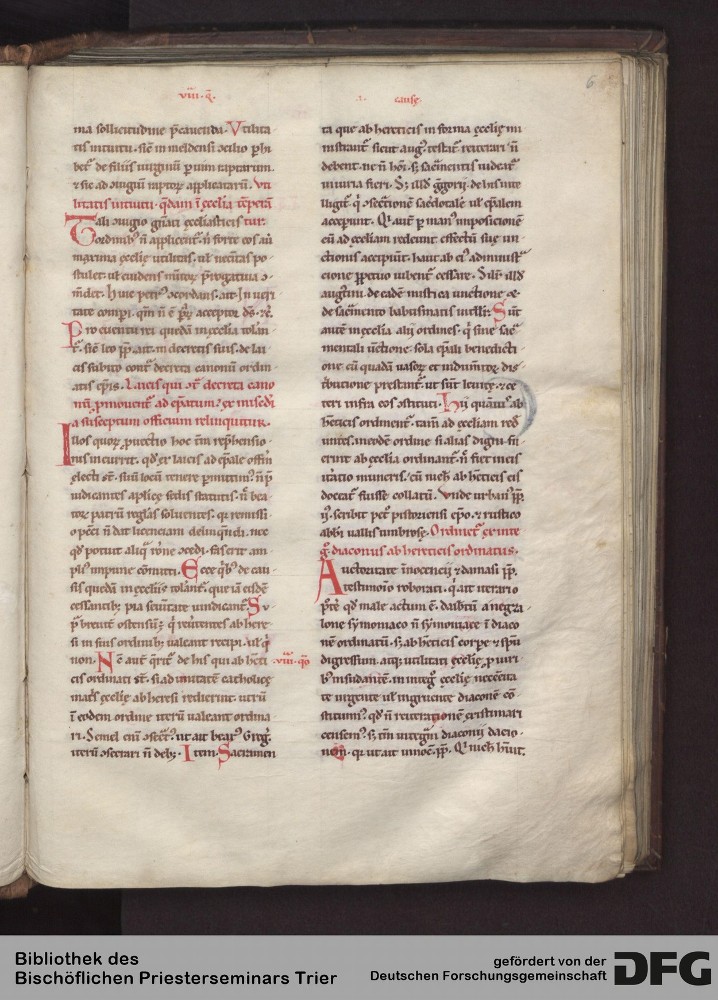 viii · q̄ ·
·i· cause ·
6
ma sollicitudine p̄cauenda · Vtilita
tis intuitu · sic̄ in meldensi ɔcilio ꝓhi
betᷣ de filiis uirginū ꝑ uim raptarum
⁊ sic ad ɔiugiū raptoꝝ applicatarū · Vti
litatis intuitu · q̄dam ī ęcclia tēperā
Tali ɔiugio gn̄ati ęcclīasticis tur·
ordinibꝰ n̄ applicentᷣ · n̄ forte eos aū
maxima ęcclię utilitas · uł necītas po
stulet · uł euidens mītoꝝ p̄rogatiua ɔ
m̄det · Huic petrꝰ ɔcordans · ait · In ueri
tate comꝑi · qm̄ n̄ ē ꝑsōꝝ acceptor dš · ⁊c̄ ·
Pro euentu rei quedā in ęcclia tolān
tᷣ · sic̄ leo p̄p · ait · in decretis suis · de lai
cis subito contᷓ decreta canonū ordin
atis ep̄is · Laicis qui ɔtᷓ decreta cano
nū ꝓmouentᷣ ad ep̄atum · ex misedi
a susceptum officium relinquitur ·
Illos quoꝝ ꝓuectio hoc tm̄ rep̄hensio
nis incurrit · qd̓ ex laicis ad ep̄ale offm̄
electi st̄ · suū locū tenere ꝑmittimꝰ · n̄ p̄
iudicantes aplice sedis statutis · n̄ bea
toꝝ patrū reglas soluentes · qr̄ remissi
o pcc̄i n̄ dat licenciam delinqn̄di · nec
qd̓ potuit aliq̄ rōne ɔcedi · fas erit am
plꝰ impune cōmitti · Ecce q̄bꝰ de cau
sis quedā in ęccliis tolantᷣ · que iā eisdē
cessantibꝫ pia seūitate uindicantᷣ · Su
p̄ breuit̄ ostensū ꝫ · q̄ reūtentes ab here
si in suis ordinibꝫ ualeant recipi · uł q̄
non · Nc̄ autē q̄ritᷣ de his qui ab hēti
·viii· qō
cis ordinati st̄ · si ad unitatē catholicę
matͥs ęcclię ab heresi redierint · utrū
ī eodem ordine itērū ualeant ordina
ri · Semel enī ɔsecrᷓ · ut ait beatꝰ Greg̓ ·
iterū ɔsecrari n̄ debꝫ · Item · Sacramen
ta que ab hereticis in forma ęcclię mi
nistrantᷣ sicut aug · testatᷣ · reiterari n̄
debent · ne n̄ hōī · sꝫ sacr̄mentis uideatᷣ
iniuria fieri · Sꝫ illd̓ g̓gorii de his inte
lligitᷣ · q̄ ɔsectionē sacdotale uł ep̄alem
acceperunt · Qi autē ꝑ manꝰ imposicionē
cū ad ęccliam redeunt · effectū sue un
ctionis accipiunt · haut ab eiꝰ administᷓ
cione ꝑpetuo iubentᷣ cessare · Silr̄ · illd̓
augᷣini · de eadē mistica unctione · ⁊
de sacr̄mento babtismatis intelli · Sūt
autē in ęcclia alii ordines · q̄ sine sac̄
mentali ūctione · sola ep̄ali benedicti
one cū quadā uasoꝝ et indum̄toꝝ dis
tbutione prestantᷣ · ut sūt leuite · ⁊ ce
teri infra eos ɔstituti · Hii quāuis ab
hēticis ordinentᷣ · tam̄ ad ęccliam red̓
untes · in eodē ordine si alias digni fu
erint ab ęcclia ordinantᷣ · n̄ fiet incīs
iteratio muneris · cū nich ab hēticis eis
doceatᷣ fuisse collatū · Vnde urbanꝰ p̄p ·
ii · scribit petᵒ pistoriensi ep̄o · ⁊ rustico
abbi uallis umbrose · Ordinetᷣ ex inte
g̓ · diaconus ab hereticis ordinatus ·
Auctoritate innocencii ⁊ damasi p̄p ·
testimōīo roborati · q̄ ait iterario
ꝑ te qd̓ male actum ē · daibtū a negzi
lone symoniaco n̄ symoniace ī diaco
nē ordinatū · sꝫ ab hēticis corpe ⁊ sp̄u
digressum · atꝫ utilitati ęcclię ꝑ uiri
bꝰ insudantē · in integᵒ ęcclię necēita
te urgente uł ingruente diaconē cō
stituimꝰ · qd̓ n̄ reiteracionē existimari
censemꝰ · sꝫ tm̄ integrā diaconii dacio
nē · qr̄ ut ait innoc̄ p̄p · Qi nich hūit ·
Bibliothek des
Bischöflichen Priesterseminars Trier
gefördert von der
Deutschen Forschungsgemeinschaft
DFG